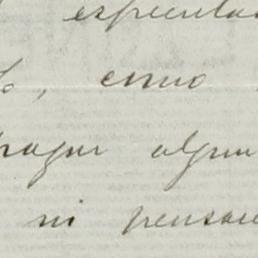 especula
, como
hagan algun
ni pensar